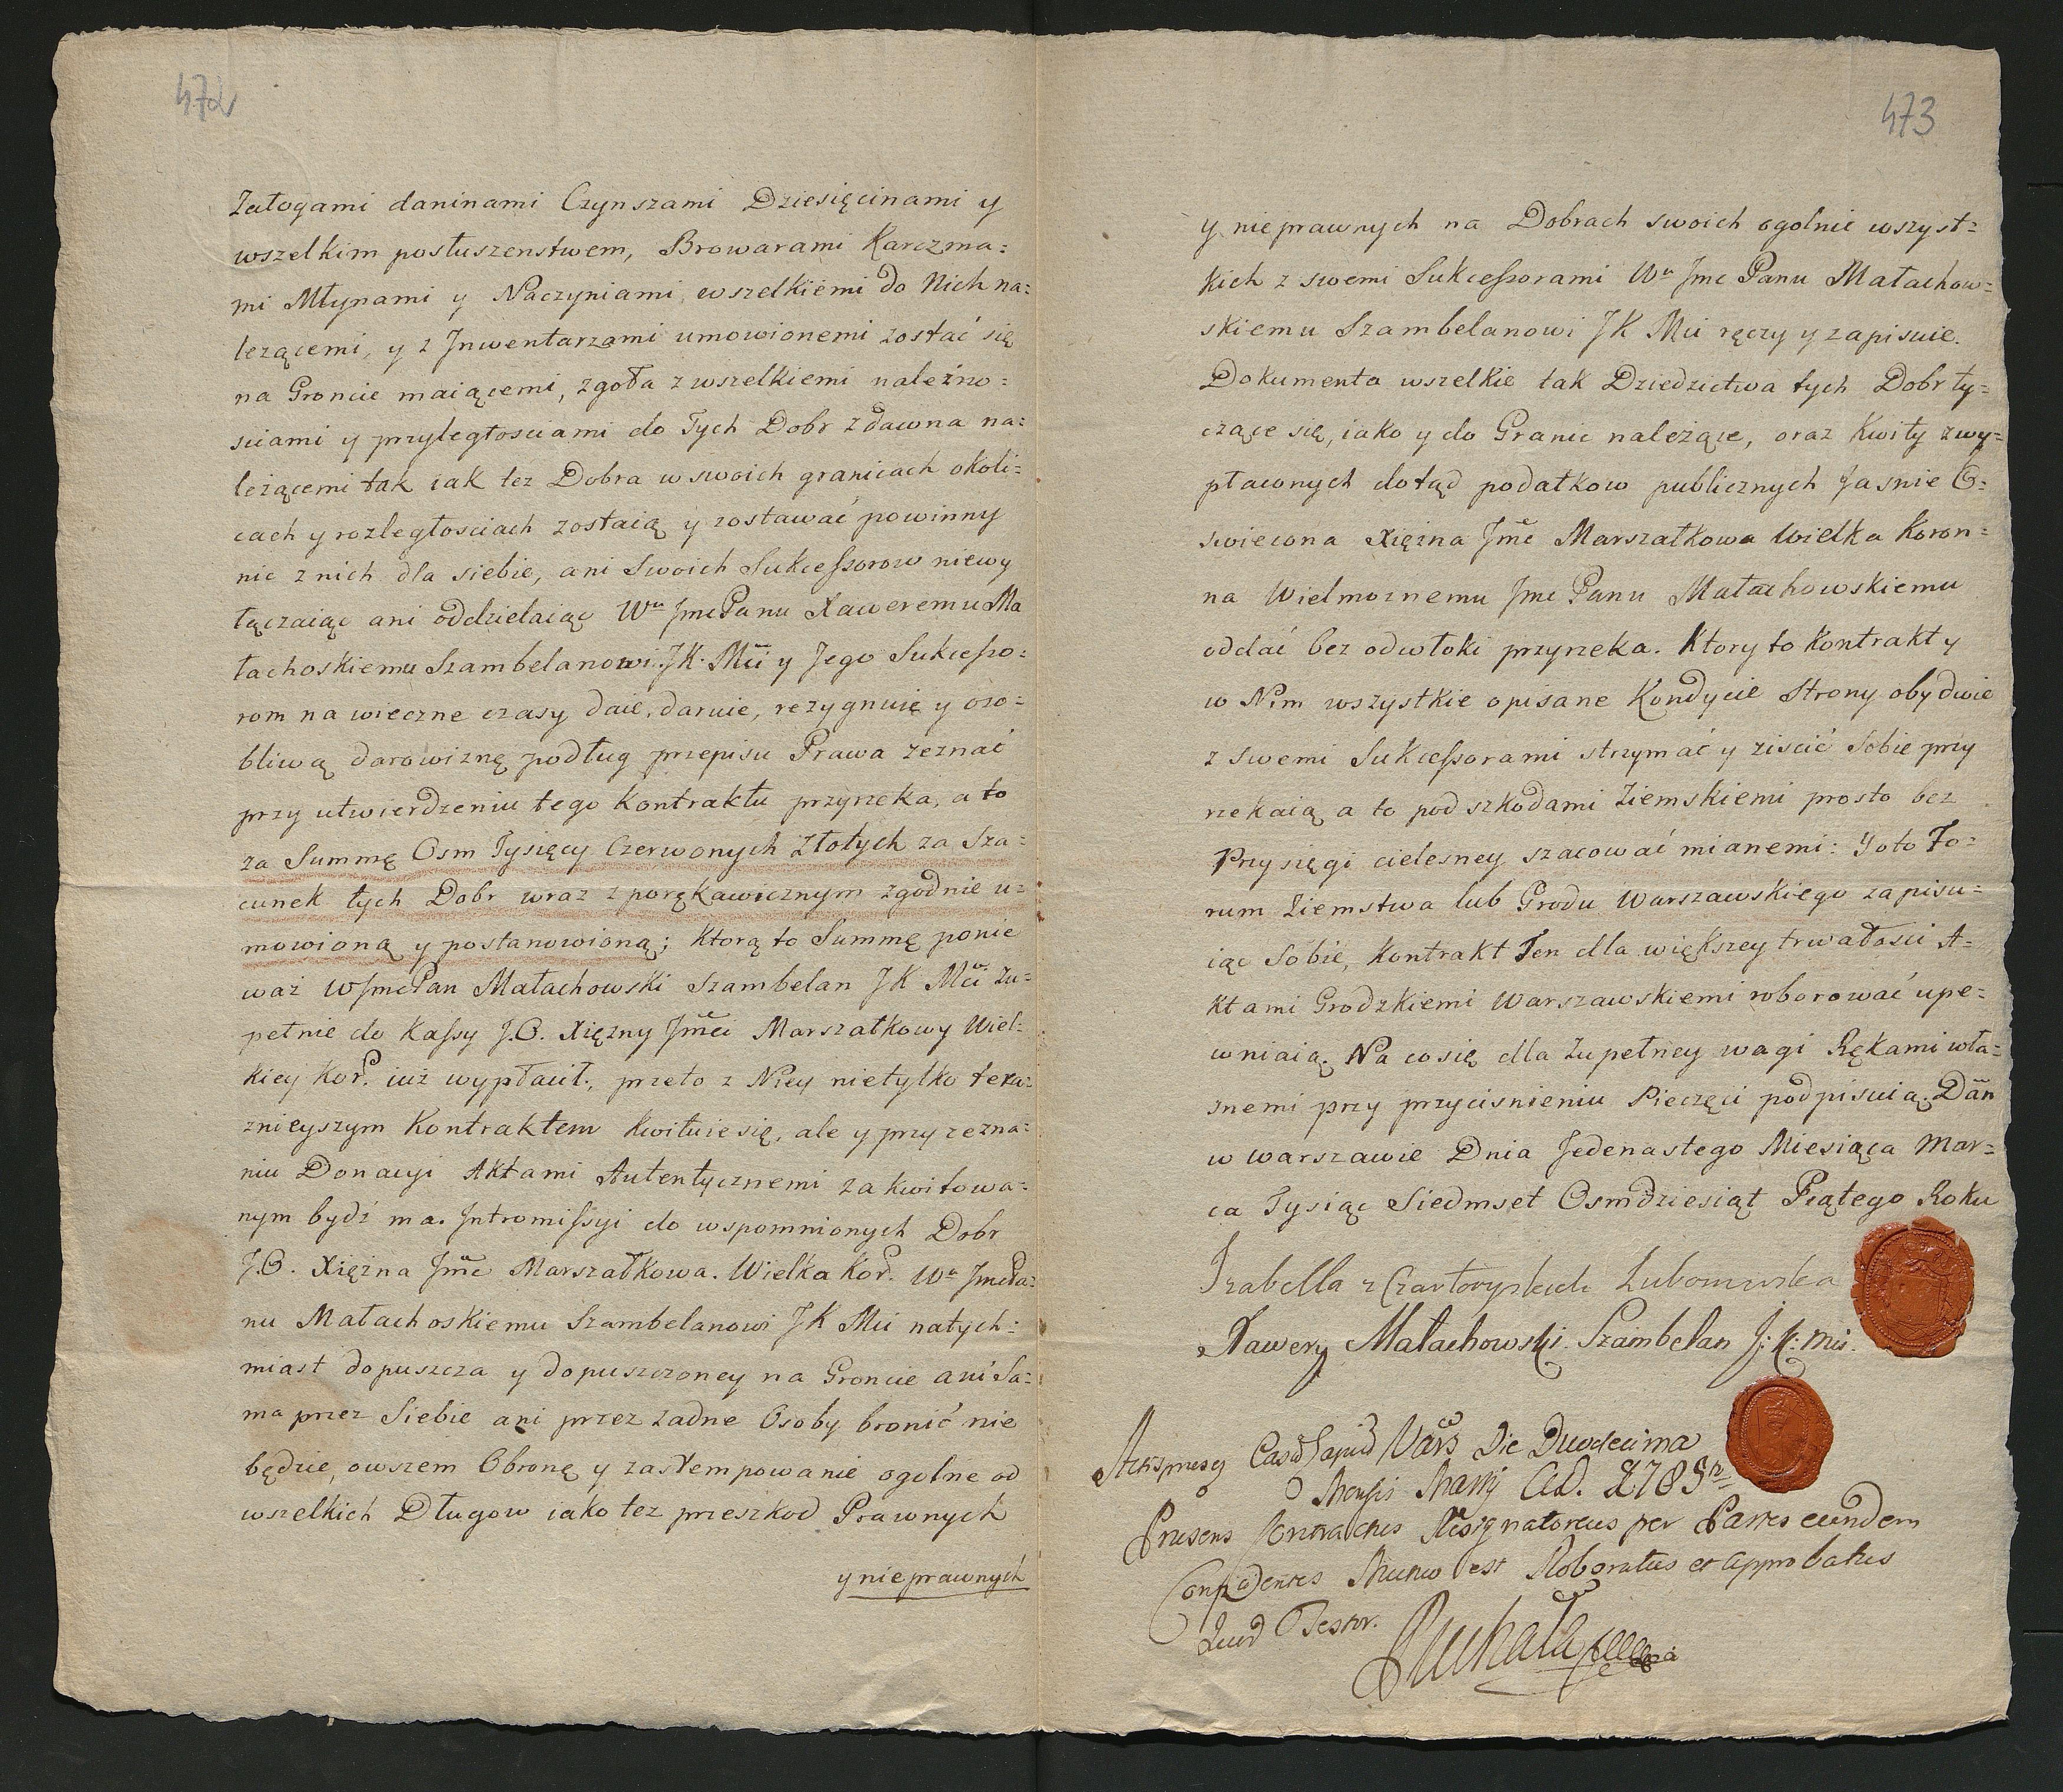 472
Załogami daninami Czynszami Dziesięcinami y
wszelkim posłuszenstwem, Browarami Karczma=
mi Młynami y Naczyniami wszelkiemi do Nich na=
lezącemi, y z Jnwentarzami umowionemi zostać się
na Groncie maiącemi, zgoła z wszelkiemi należno=
sciami y przyległosciami do Tych Dobr zdawna na=
leżącemi tak iak tez Dobra w swoich granicach okoli=
cach y rozległosciach zostaią y zostawać powinny
nic z nich dla siebie, ani Swoich Sukcessorow niewy
łączaiąc ani oddzielaiąc Wu JmcPanu Xaweremu Ma
łachoskiemu Szambelanowi JK. Mci y Jego Sukcesso=
rom na wieczne czasy daie, daruie, rezygnuie y oso=
bliwą darowiznę podług przepisu Prawa zeznać
przy utwierdzeniu tego Kontraktu przyrzeka, a to
za Summę Osm Tysięcy Czerwonych Złotych za Sza=
cunek tych Dobr wraz z porękawicznym zgodnie u=
mowioną y postanowioną; Ktorą to Summę ponie
waż WJmcPan Małachowski Szambelan JK Mci zu=
pełnie do Kassy J.O. Xięzny Jmci Marszałkowy Wiel=
kiey Kor. iuż wypłacił, przeto z Niey nietylko tera=
znieyszym Kontraktem Kwituie się, ale y przy zezna=
niu Donacyi Aktami Autentycznemi zakwitowa=
nym bydź ma. Jntromissyi do wspomnionych Dobr
J.O. Xięźna Jmć Marszałkowa Wielka Kor. Wu JmcPa=
nu Małachoskiemu Szambelanowi JK Mci natych=
miast dopuszcza y dopuszczoney na Groncie ani Sa=
ma przez Siebie ani przez zadne Osoby bronić nie
będzie, owszem Obronę y zastempowanie ogolne od
wszelkich Długow iako tez przeszkod Prawnych
y nieprawnych
473
y nieprawnych na Dobrach swoich ogolnie wszyst=
kich z swemi Sukcessorami Wu Jmc Panu Małachow=
skiemu Szambelanowi JK Mci ręczy y zapisuie.
Dokumenta wszelkie tak Dziedzictwa tych Dobr ty=
czące się, iako y do Granic należące, oraz Kwity z wy=
płaconych dotąd podatkow publicznych Jasnie O=
swiecona Xięzna Jmć Marszałkowa Wielka Koron=
na Wielmoznemu Jmc Panu Małachowskiemu
oddać bez odwłoki przyrzeka. Ktory to Kontrakt y
w Nim wszystkie opisane Kondycie Strony obydwie
z swemi Sukcessorami strzymać y ziscić Sobie przy
rzekaią a to pod szkodami Ziemskiemi prosto bez
Przysięgi cielesney szacować mianemi: Y oto Fo=
rum Ziemstwa lub Grodu Warszawskiego zapisu=
iąc Sobie, Kontrakt Ten dla większey trwałości A=
ktami Grodzkiemi Warszawskiemi roborować upe=
wniaią. Na co się dla Zupełney wagi Rękami wła=
snemi przy przycisnieniu Pieczęci podpisuią. Dan
w Warszawie Dnia Jedenastego Miesiąca Mar=
ca Tysiąc Siedmset Osmdziesiąt Piątego Roku
Izabella z Czartoryskich Lubomirska
Xawery Małachowski Szambelan J: K: Mci.
Actis presen Castr Capit Vars Die Duodecima
Mensis Martij A.D. 1785
Presens Contractus per Partes eundem
Mutuo est Roboratus et Approbatus
Quod Testor.